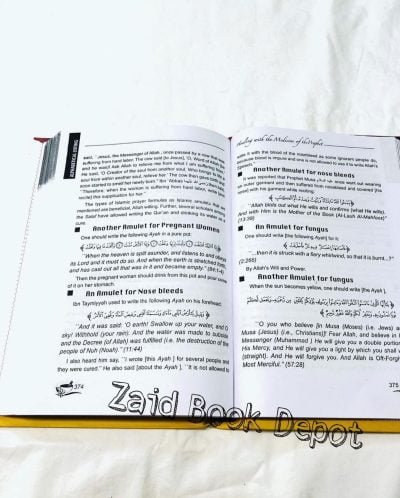 said, "Jesus, the Messenger of Allah, once passed by a cow that was
suffering from hard labor. The cow said [to Jesus], 'O, Word of Allah
and he would Ask Allah to relieve me from what I am suffering.
He said, 'O Creator of the soul from another soul, Who brings
soul from within another soul, relieve her.' The cow then gave birth and
soon started to smell her newly born." Ibn 'Abbas said,
"Therefore, when the woman is suffering from hard labor, write
recite) this supplication for her."
The types of Islamic prayer formulas or Islamic amulets that we
mentioned are beneficial, Allah willing. Further, several scholars among
the Salaf have allowed writing the Qur'an and drinking its water as a
cure.
Another Amulet for Pregnant Women
One should write the following Ayah in a pure pot:
"When the heaven is split asunder, and listens to and obeys
its Lord and it must do so. And when the earth is stretched forth,
and has cast out all that was in it and became empty." (84:1-4)
Then the pregnant woman should drink from this pot and pour some
of it on her stomach.
An Amulet for Nose bleeds
Ibn Taymiyyah used to write the following Ayah on his forehead:
"And it was said: 'O earth! Swallow up your water, and O
sky! Withhold (your rain). And the water was made to subside
and the Decree (of Allah) was fulfilled (i.e. the destruction of the
people of Nuh (Noah)." (11:44)
I also heard him say, "I wrote [this Ayah] for several people and
they were cured." He also said [about the Ayah], "It is not allowed to
374
Healing with the Medicine of the Prophet
write it with the blood of the nosebleed as some ignorant people do,
because blood is impure and one is not allowed to use it to write Allah's
Another Amulet for nose bleeds
It was reported that Prophet Musa once went out wearing
an outer garment and then suffered from nosebleed and covered [his
nose] with his garment while reciting:
"Allah blots out what He wills and confirms (what He wills).
And with Him is the Mother of the Book (Al-Lauh Al-Mahfooz)"
(13:39)
An Amulet for fungus
One should write [the following Ayah] for it:
"...then it is struck with a fiery whirlwind, so that it is burnt...?"
(2:266)
By Allah's Will and Power.
Another Amulet for fungus
When the sun becomes yellow, one should write [the Ayah],
"O you who believe [in Musa (Moses) (i.e. Jews) and
Musa (Jesus) (i.e., Christians)]! Fear Allah, and believe in His
Messenger (Muhammad) He will give you a double portion of
His Mercy, and He will give you a light by which you shall walk
(straight). And He will forgive you. And Allah is Oft-Forgiving,
Most Merciful." (57:28)
375
Zaid Book Depot